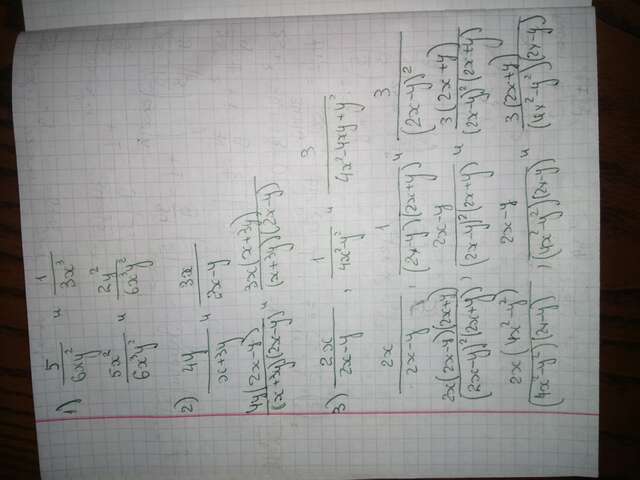 1) 5/(6xy²) и 1/(3x³)
5x²/(6x³y²) и 2y²/(6x³y²)
2) 4y/(x+3y) и 3x/(2x-y)
4y(2x-y)/((x+3y)(2x-y)) и 3x(x+3y)/((x+3y)(2x-y))
3) 2x/(2x-y), 1/(4x²-y²) и 3/(4x²-4xy+y²)
2x/(2x-y), 1/((2x-y)(2x+y)) и 3/(2x-y)²
2x(2x-y)(2x+y)/((2x-y)²(2x+y)), (2x-y)/((2x-y)²(2x+y)) и 3(2x+y)/((2x-y)²(2x+y))
2x(4x²-y²)/((4x²-y²)(2x-y)), (2x-y)/((4x²-y²)(2x-y)) и 3(2x+y)/((4x²-y²)(2x-y))